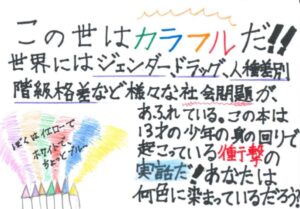 この世はカラフルだ!!
世界にはジェンダー、ドラッグ、人種差別
階級格差など様々な社会問題が、
あふれている。この本は
13才の少年の身の回りで
起こっている衝撃の
実話だ!あなたは
何色に染まっているだろう?
ぼくはイエローで
ホワイトで、
ちょっとブルー